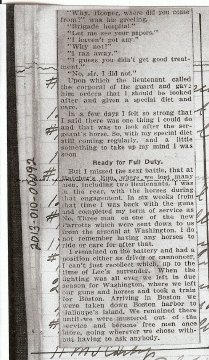 "Why, Hooper, where did you come
from?" was his greeting.
"Brigade hospital."
"Let me see your papers."
"I haven't got any."
"Why not?"
"I ran away."
"I guess you didn't get good treat-
ment."
"No, sir, I did not."
Upon which the lieutenant called
the corporal of the guard and gave
him orders that I should be looked
after and given a special diet and
care.
In a few days I felt so strong that
I told there was one thing I could do
and that was to look after the ser-
geant's horse. So, with my special diet
still coming regularly, and a little
something to take up my mind I was
soon
Ready for Full Duty.
But I missed the next battle, that at
Hatcher's Run, where we lost many
men, including two lieutenants. I was
in the rear, with the horses during
that engagement. In six weeks from
that time I was back with the guns
and completed my term of service as
No. Three man on one of the new
Parrotts which were sent down to us
from the arsenal at Washington. I do
not remember having any horses to
ride or care for after that.
I remained on the battery and had a
position either as driver or cannoneer,
I can't just recollect which, up to the
time of Lee's surrender. When the
fighting was all over we left in due
season for Washington, where we left
our guns and horses and took a train
for Boston. Arriving in Boston we
were taken down Boston harbor to
Galloupe's Island. We remained there
until we were mustered out of the
service and became free men once
more, going where we chose with-
out having to ask anybody.
2013-010-00092